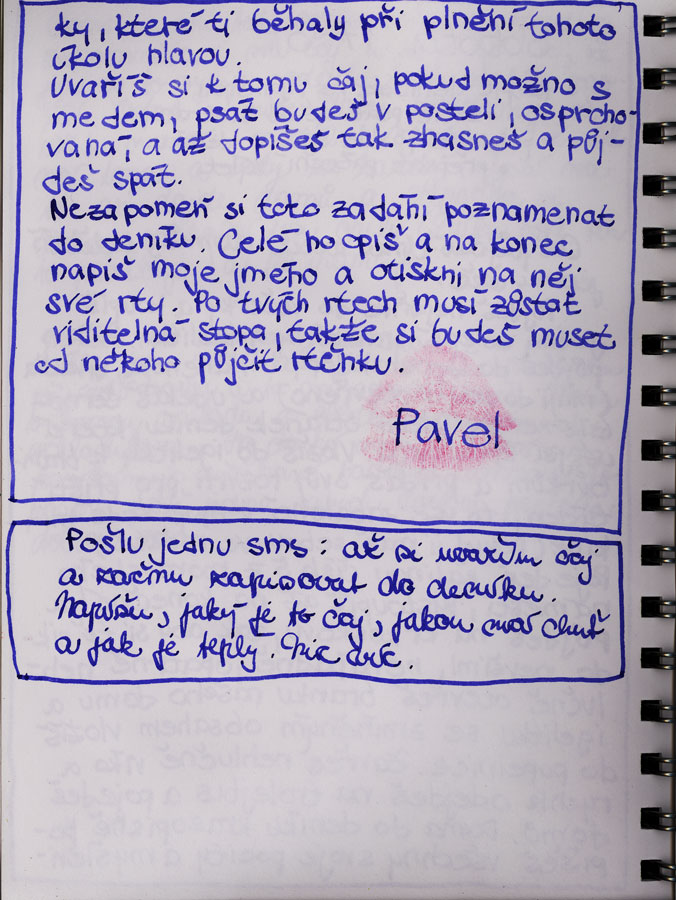 ky, které ti běhaly při plnění tohoto
úkolu hlavou.
Uvaříš si k tomu čaj, pokud možno s
medem, psát budeš v posteli, osprcho-
vaná, a až dopíšeš tak zhasneš a půj-
deš spát.
Nezapomeň si toto zadání poznamenat
do deníku. Celé ho opiš a na konec
napiš moje jméno a otiskni na něj
své rty. Po tvých rtech musí zůstat
viditelná stopa, takže si budeš muset
od někoho půjčit rtěnku.
Pavel
Pošlu jednu sms: až si uvařím čaj
a začnu zapisovat do deníku.
Napíšu, jaký je to čaj, jakou má chuť
a jak je teplý. Nic víc.